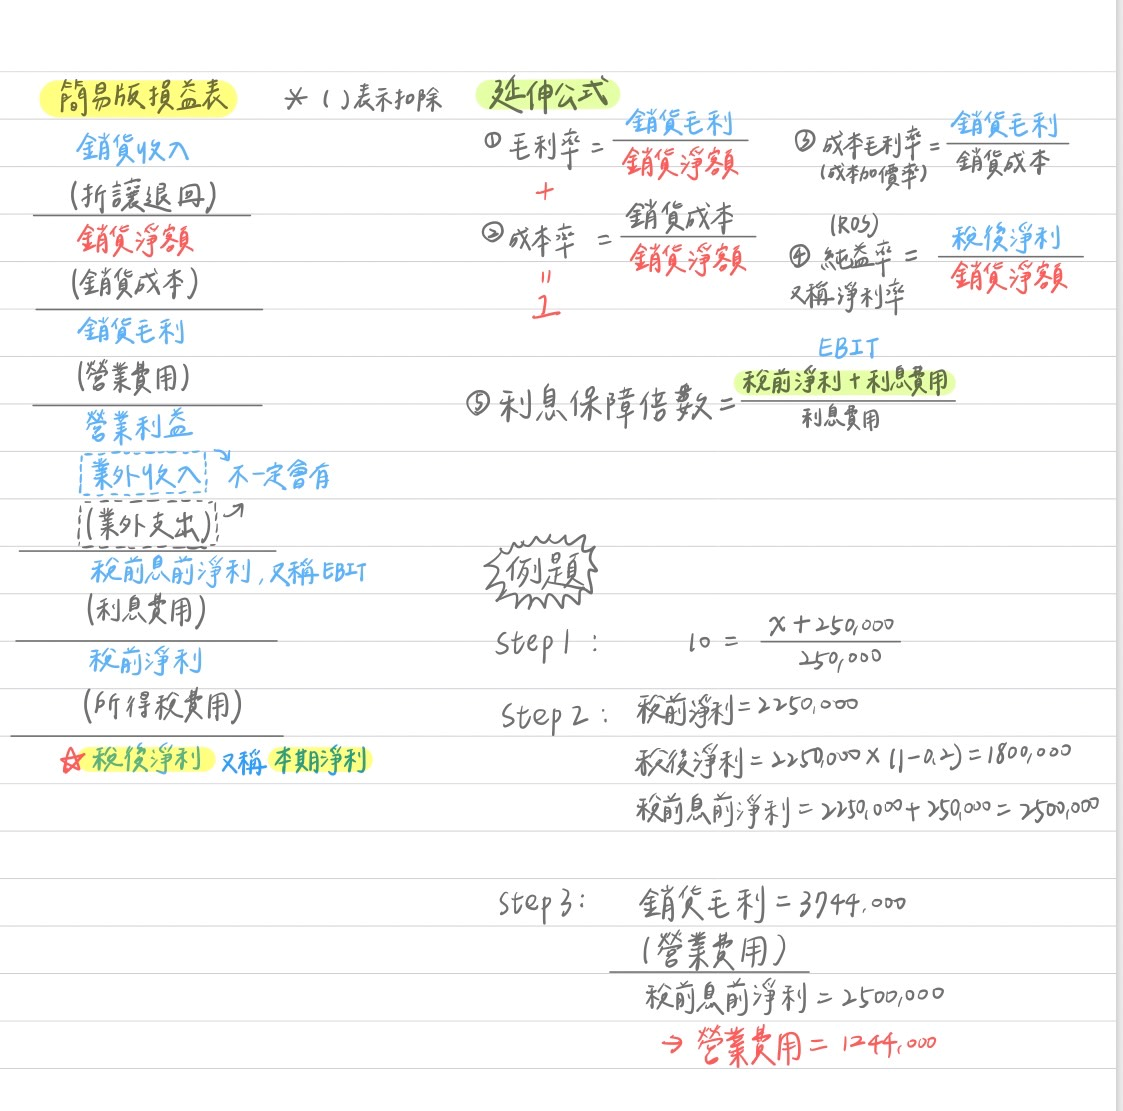 簡易版損益表 * ( )表示扣除
銷貨收入
(折讓退回)
銷貨淨額
(銷貨成本)
銷貨毛利
(營業費用)
營業利益
業外收入 不一定會有
(業外支出)
稅前息前淨利,又稱EBIT
(利息費用)
稅前淨利
(所得稅費用)
☆稅後淨利 又稱 本期淨利
延伸公式
① 毛利率 = 銷貨毛利 / 銷貨淨額
+
② 成本率 = 銷貨成本 / 銷貨淨額
=
1
③ 成本毛利率 = 銷貨毛利 / 銷貨成本
(成本加價率)
(ROS)
④ 純益率 = 稅後淨利 / 銷貨淨額
又稱淨利率
EBIT
⑤ 利息保障倍數 = 稅前淨利+利息費用 / 利息費用
例題
Step1: 10 = x+250,000 / 250,000
Step2: 稅前淨利=2250,000
稅後淨利=2250,000×(1-0.2)=1800,000
稅前息前淨利=2250,000+250,000=2500,000
Step3: 銷貨毛利=3744,000
(營業費用)
稅前息前淨利=2500,000
→營業費用=1244,000